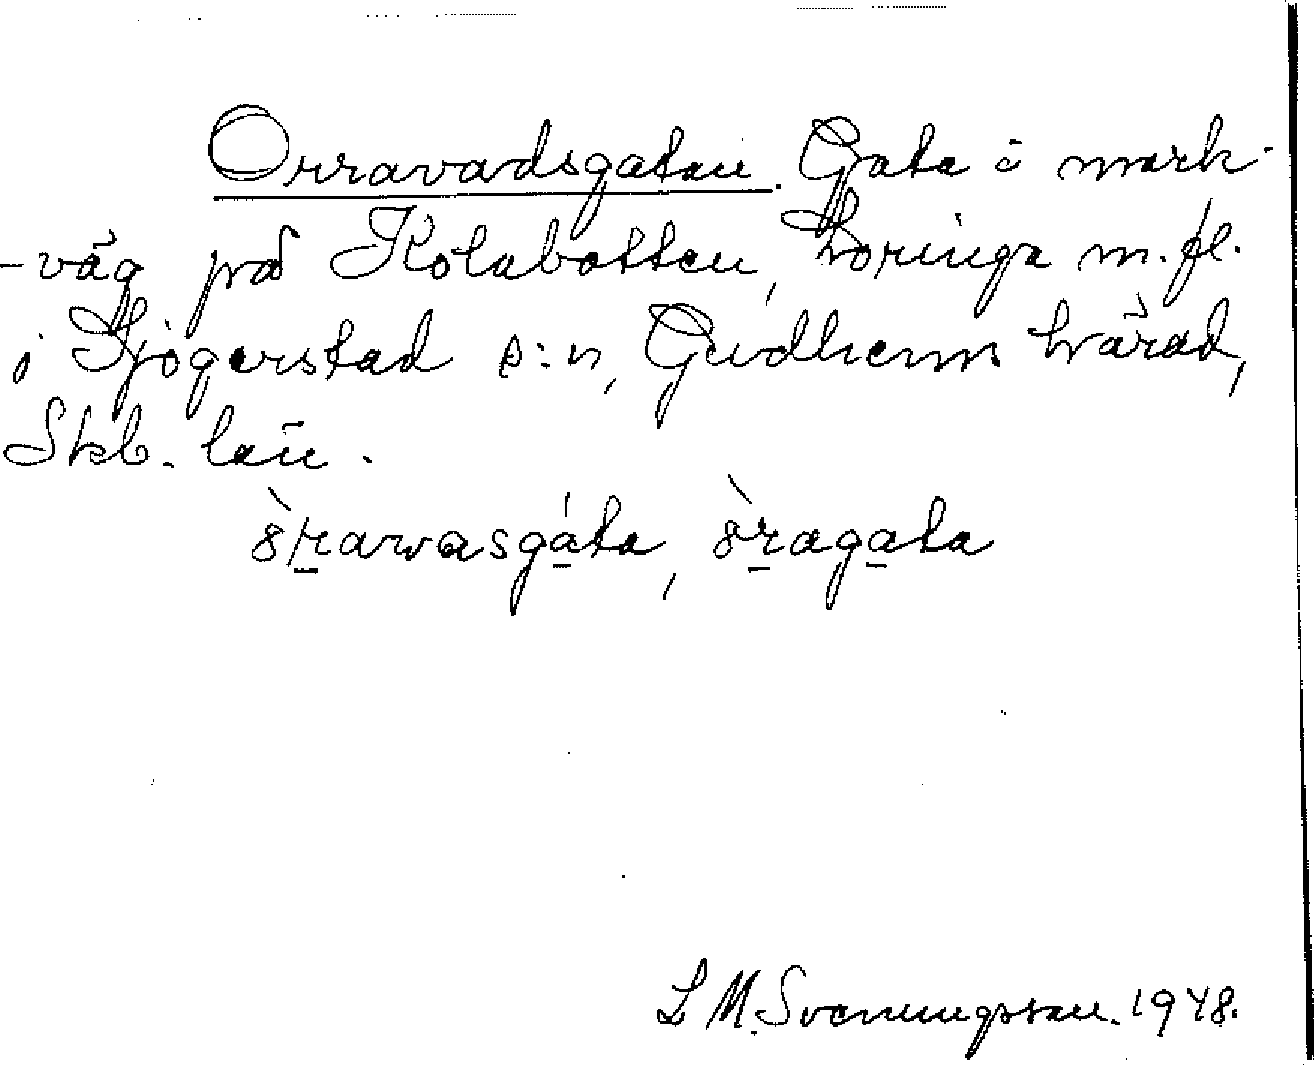 Orravadsgatan. Gata o mark-
-väg på Kolabotten, Horinga m. fl.
i Sjögerstad s:n, Gudhems härad,
Skb. län.
òrawasgáta, òragata
L M. Svenningsson. 1948.